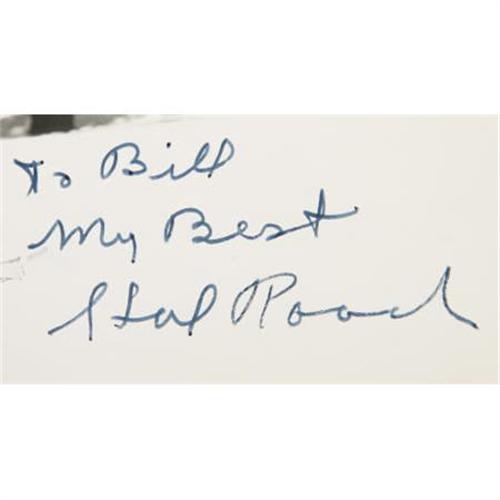 To Bill
My Best
Hal Roach